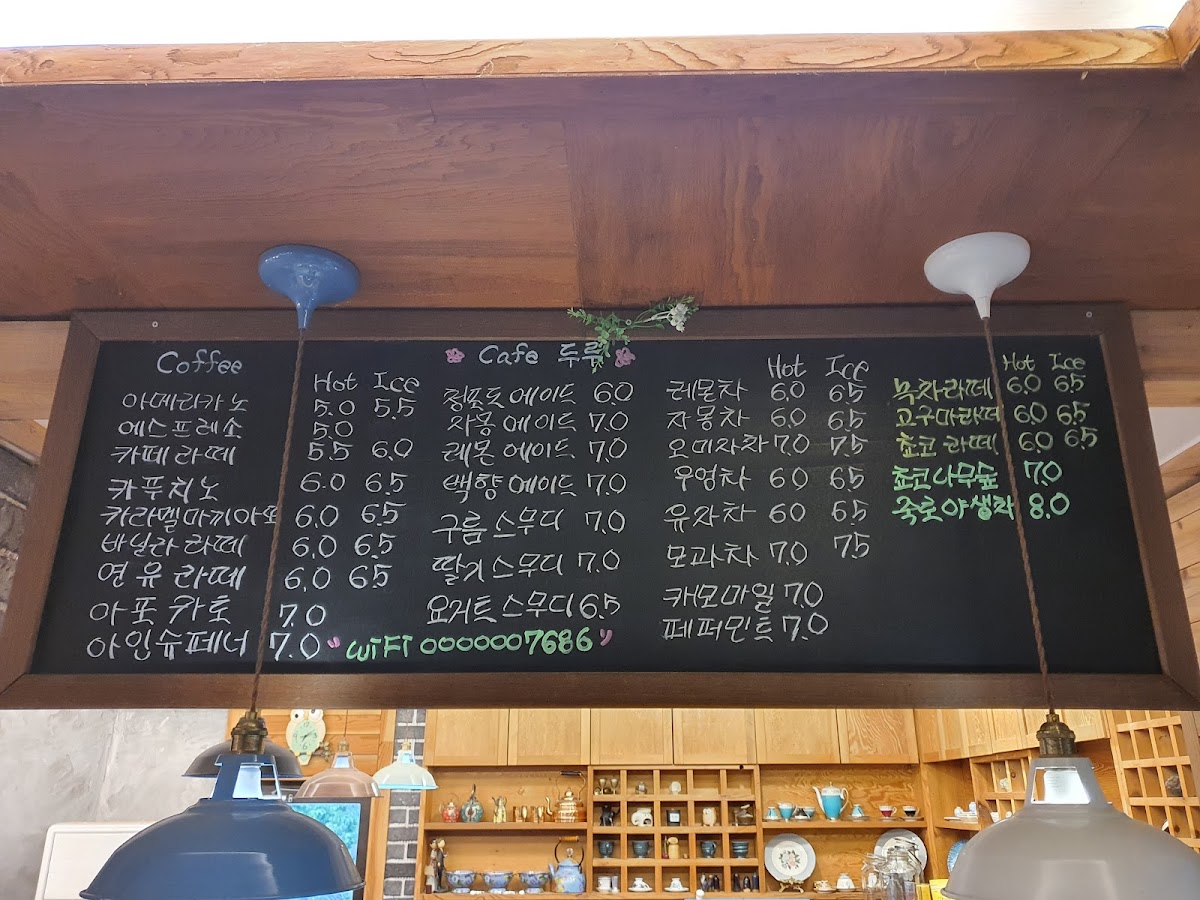 Coffee
Hot Ice
아메리카노 5.0 5.5
에스프레소 5.0
카페라떼 5.5 6.0
카푸치노 6.0 6.5
카라멜마끼아또 6.0 6.5
바닐라 라떼 6.0 6.5
연유 라떼 6.0 6.5
아포카토 7.0
아인슈페너 7.0
Cafe 두루
청포도에이드 6.0
자몽에이드 7.0
레몬에이드 7.0
백향에이드 7.0
구름스무디 7.0
딸기스무디 7.0
요거트스무디 6.5
"WiFi 0000007686"
Hot Ice
레몬차 6.0 6.5
자몽차 6.0 6.5
오미자차 7.0 7.5
우엉차 6.0 6.5
유자차 6.0 6.5
모과차 7.0 7.5
캐모마일 7.0
페퍼민트 7.0
Hot Ice
녹차라떼 6.0 6.5
고구마라떼 6.0 6.5
쵸코라떼 6.0 6.5
쵸코나무숲 7.0
야생차 8.0